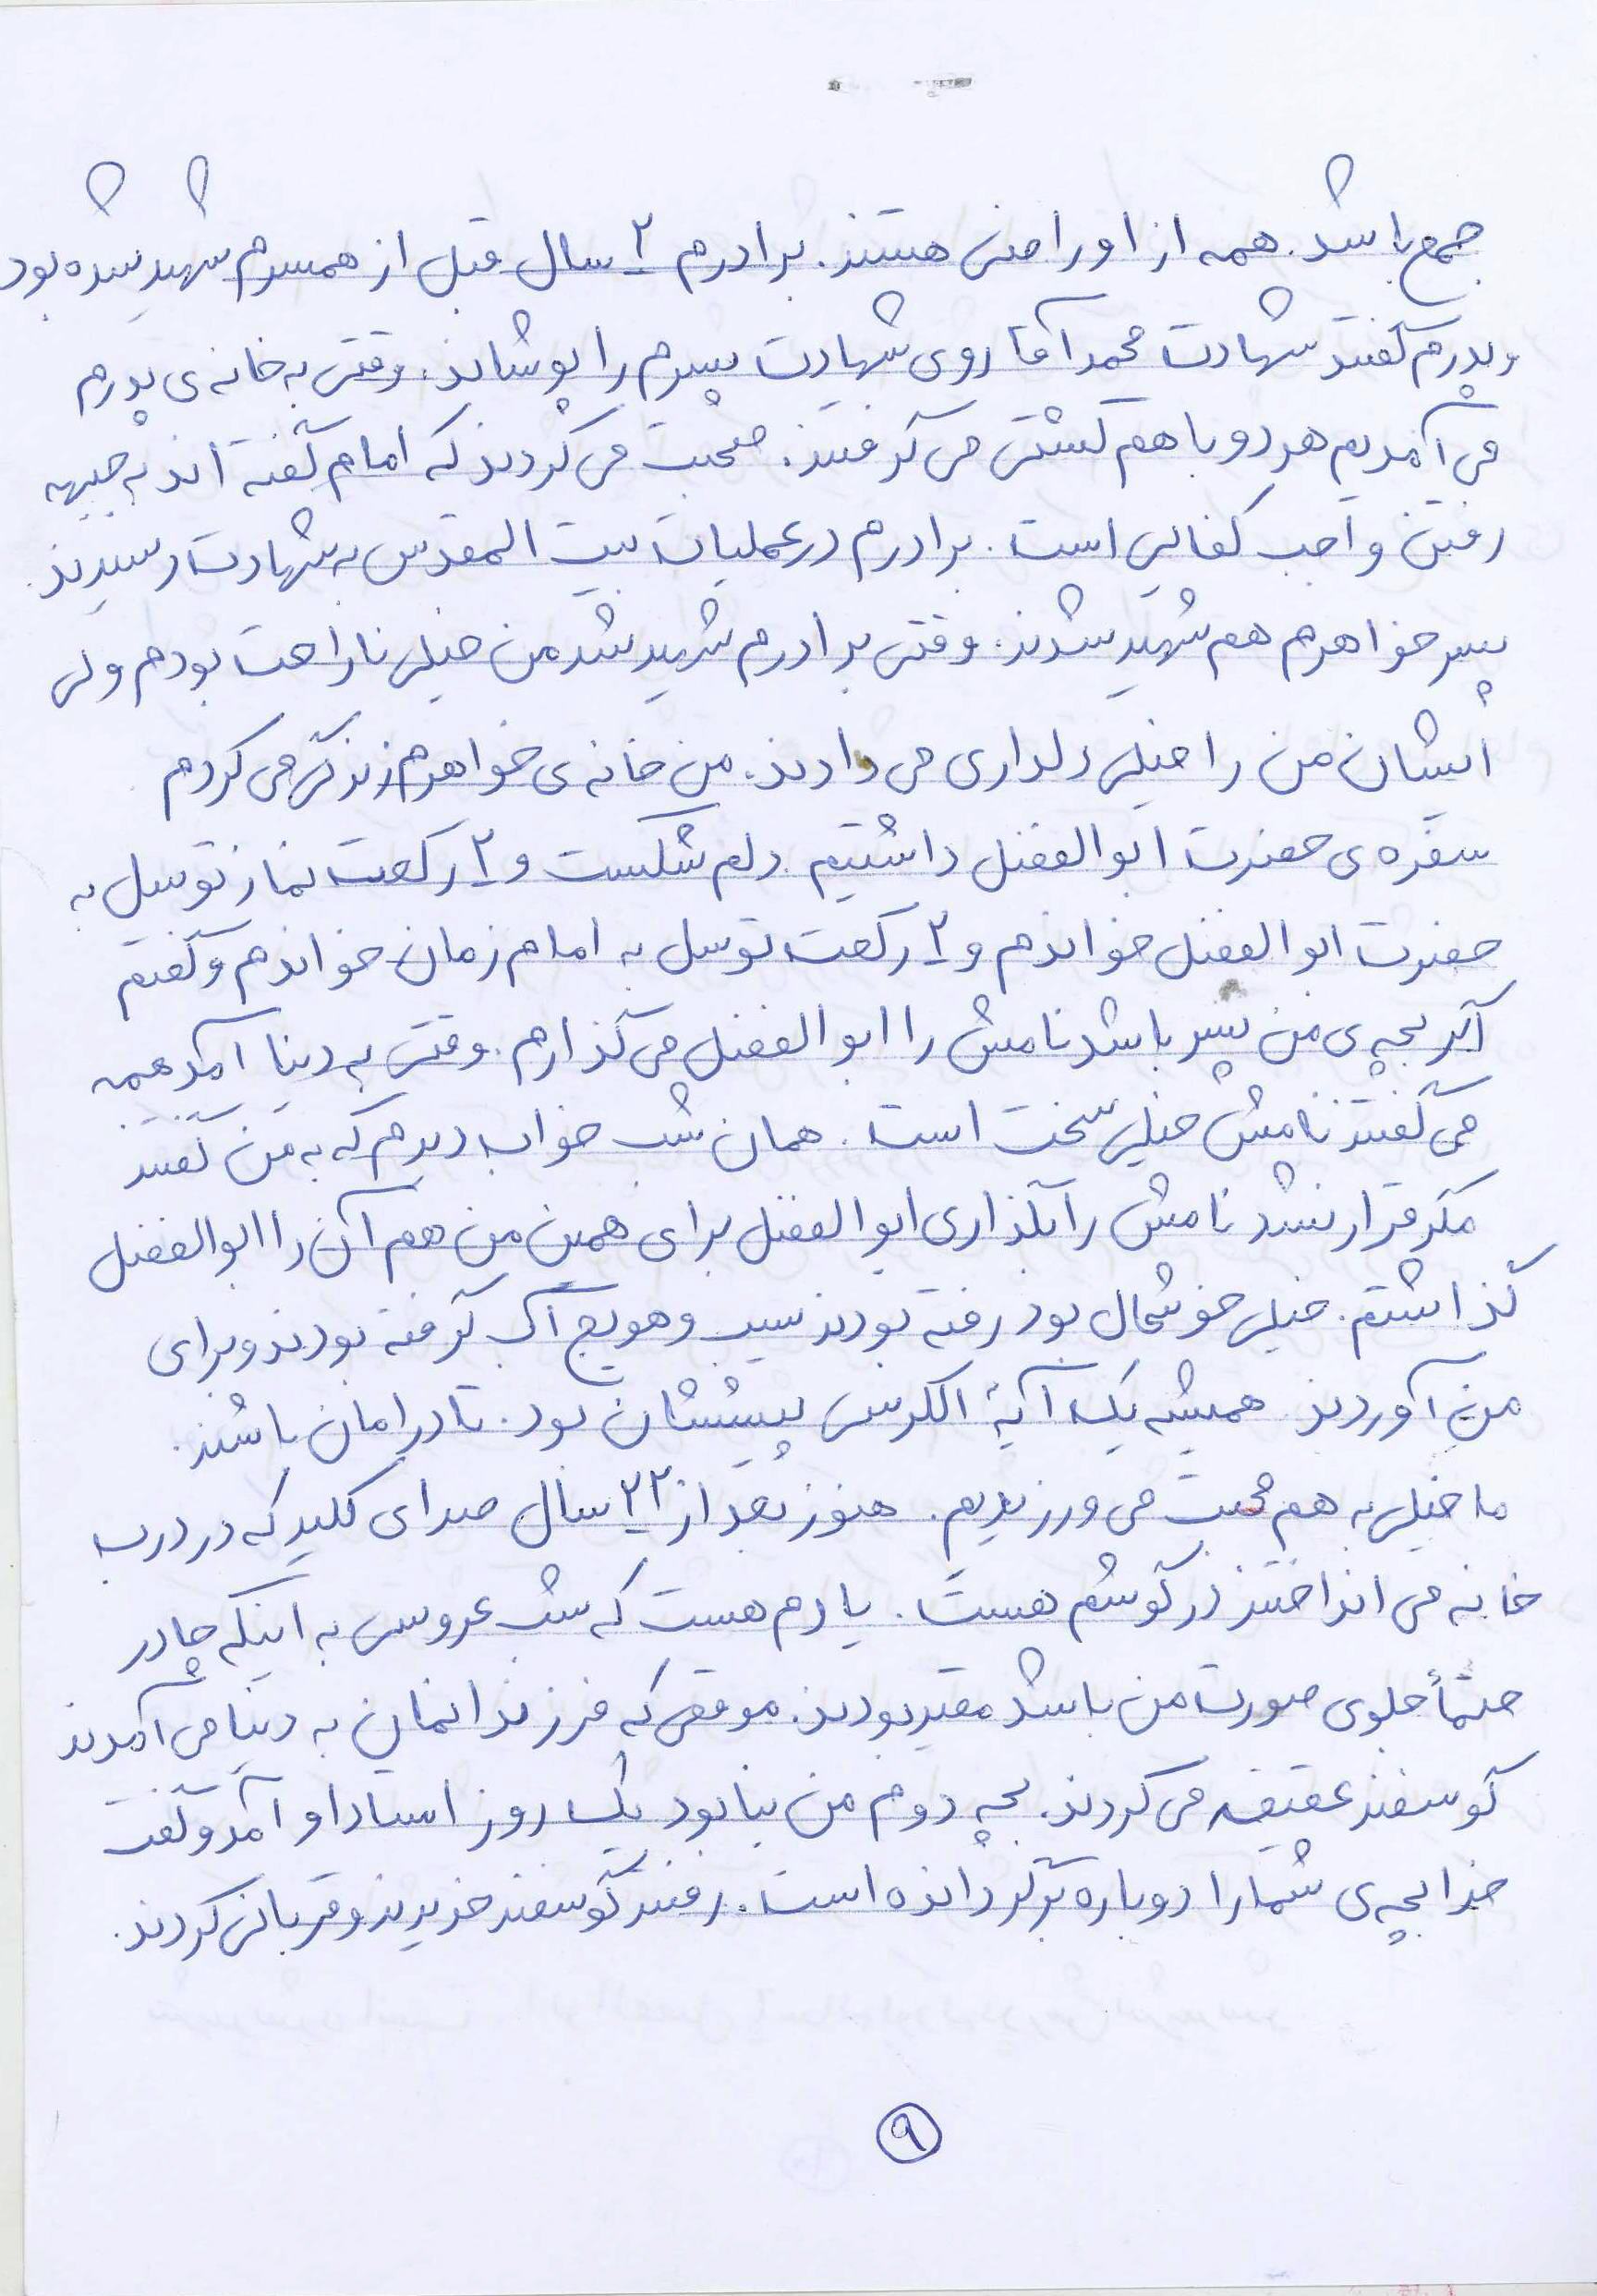 جمع باشد. همه از او راضی هستند. برادرم ۲ سال قبل از همسرم شهید شده بود
و پدرم گفتند شهادت محمد آقا روی شهادت پسرم را پوشاند. وقتی به خانه ی پدرم
می آمدیم هر دو با هم کشتی می گرفتند. صحبت می کردند که امام گفته اند به جبهه
رفتن واجب کفایی است. برادرم در عملیات بیت المقدس به شهادت رسیدند.
پسر خواهرم هم شهید شدند. وقتی برادرم شهید شد من خیلی ناراحت بودم ولی
ایشان من را خیلی دلداری می دادند. من خانه ی خواهرم زندگی می کردم
سفره ی حضرت ابوالفضل داشتیم. دلم شکست و ۲ رکعت نماز توسل به
حضرت ابوالفضل خواندم و ۲ رکعت توسل به امام زمان خواندم و گفتم
اگر بچه ی من پسر باشد نامش را ابوالفضل می گذارم. وقتی به دنیا آمد همه
می گفتند نامش خیلی سخت است. همان شب خواب دیدم که به من گفتند
مگر قرار نشد نامش را بگذاری ابوالفضل برای همین من هم آن را ابوالفضل
گذاشتم. خیلی خوشحال بود رفته بودند سیب و هویج آب گرفته بودند و برای
من آوردند. همیشه یک آیة الکرسی پیششان بود. تا در امان باشند.
ما خیلی به هم محبت می ورزیدیم. هنوز بعد از ۲۲ سال صدای کلید که در درب
خانه می انداختند در گوشم هست. یادم هست که شب عروسی به اینکه چادر
حتماً جلوی صورت من باشد مقید بودند. موقعی که فرزندانمان به دنیا می آمدند
گوسفند عقیقه می کردند. بچه دوم من بنا بود یک روز استاد او آمد و گفت
خدا بچه ی شما را دوباره برگردانده است. رفتند گوسفند خریدند و قربانی کردند.
۹